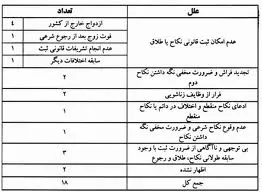 علل
تعداد
عدم امکان ثبت قانونی نکاح یا طلاق
ازدواج خارج از کشور
۴
فوت زوج بعد از رجوع شرعی
۱
عدم انجام تشریفات قانونی ثبت
۱
سابقه اختلافات دیگر
۱
تجدید فراش و ضرورت مخفی نگه داشتن نکاح
دوم
۲
فرار از وظایف زناشویی
۲
ادعای نکاح منقطع و اختلاف در دائم یا نکاح
منقطع
۱
عدم وقوع نکاح شرعی و ضرورت مخفی نگه
داشتن نکاح
۱
بی توجهی و ناآگاهی از ضرورت ثبت با وجود
سابقه طولانی نکاح، طلاق و رجوع
۳
اظهار نشده
۲
جمع کل
۱۸